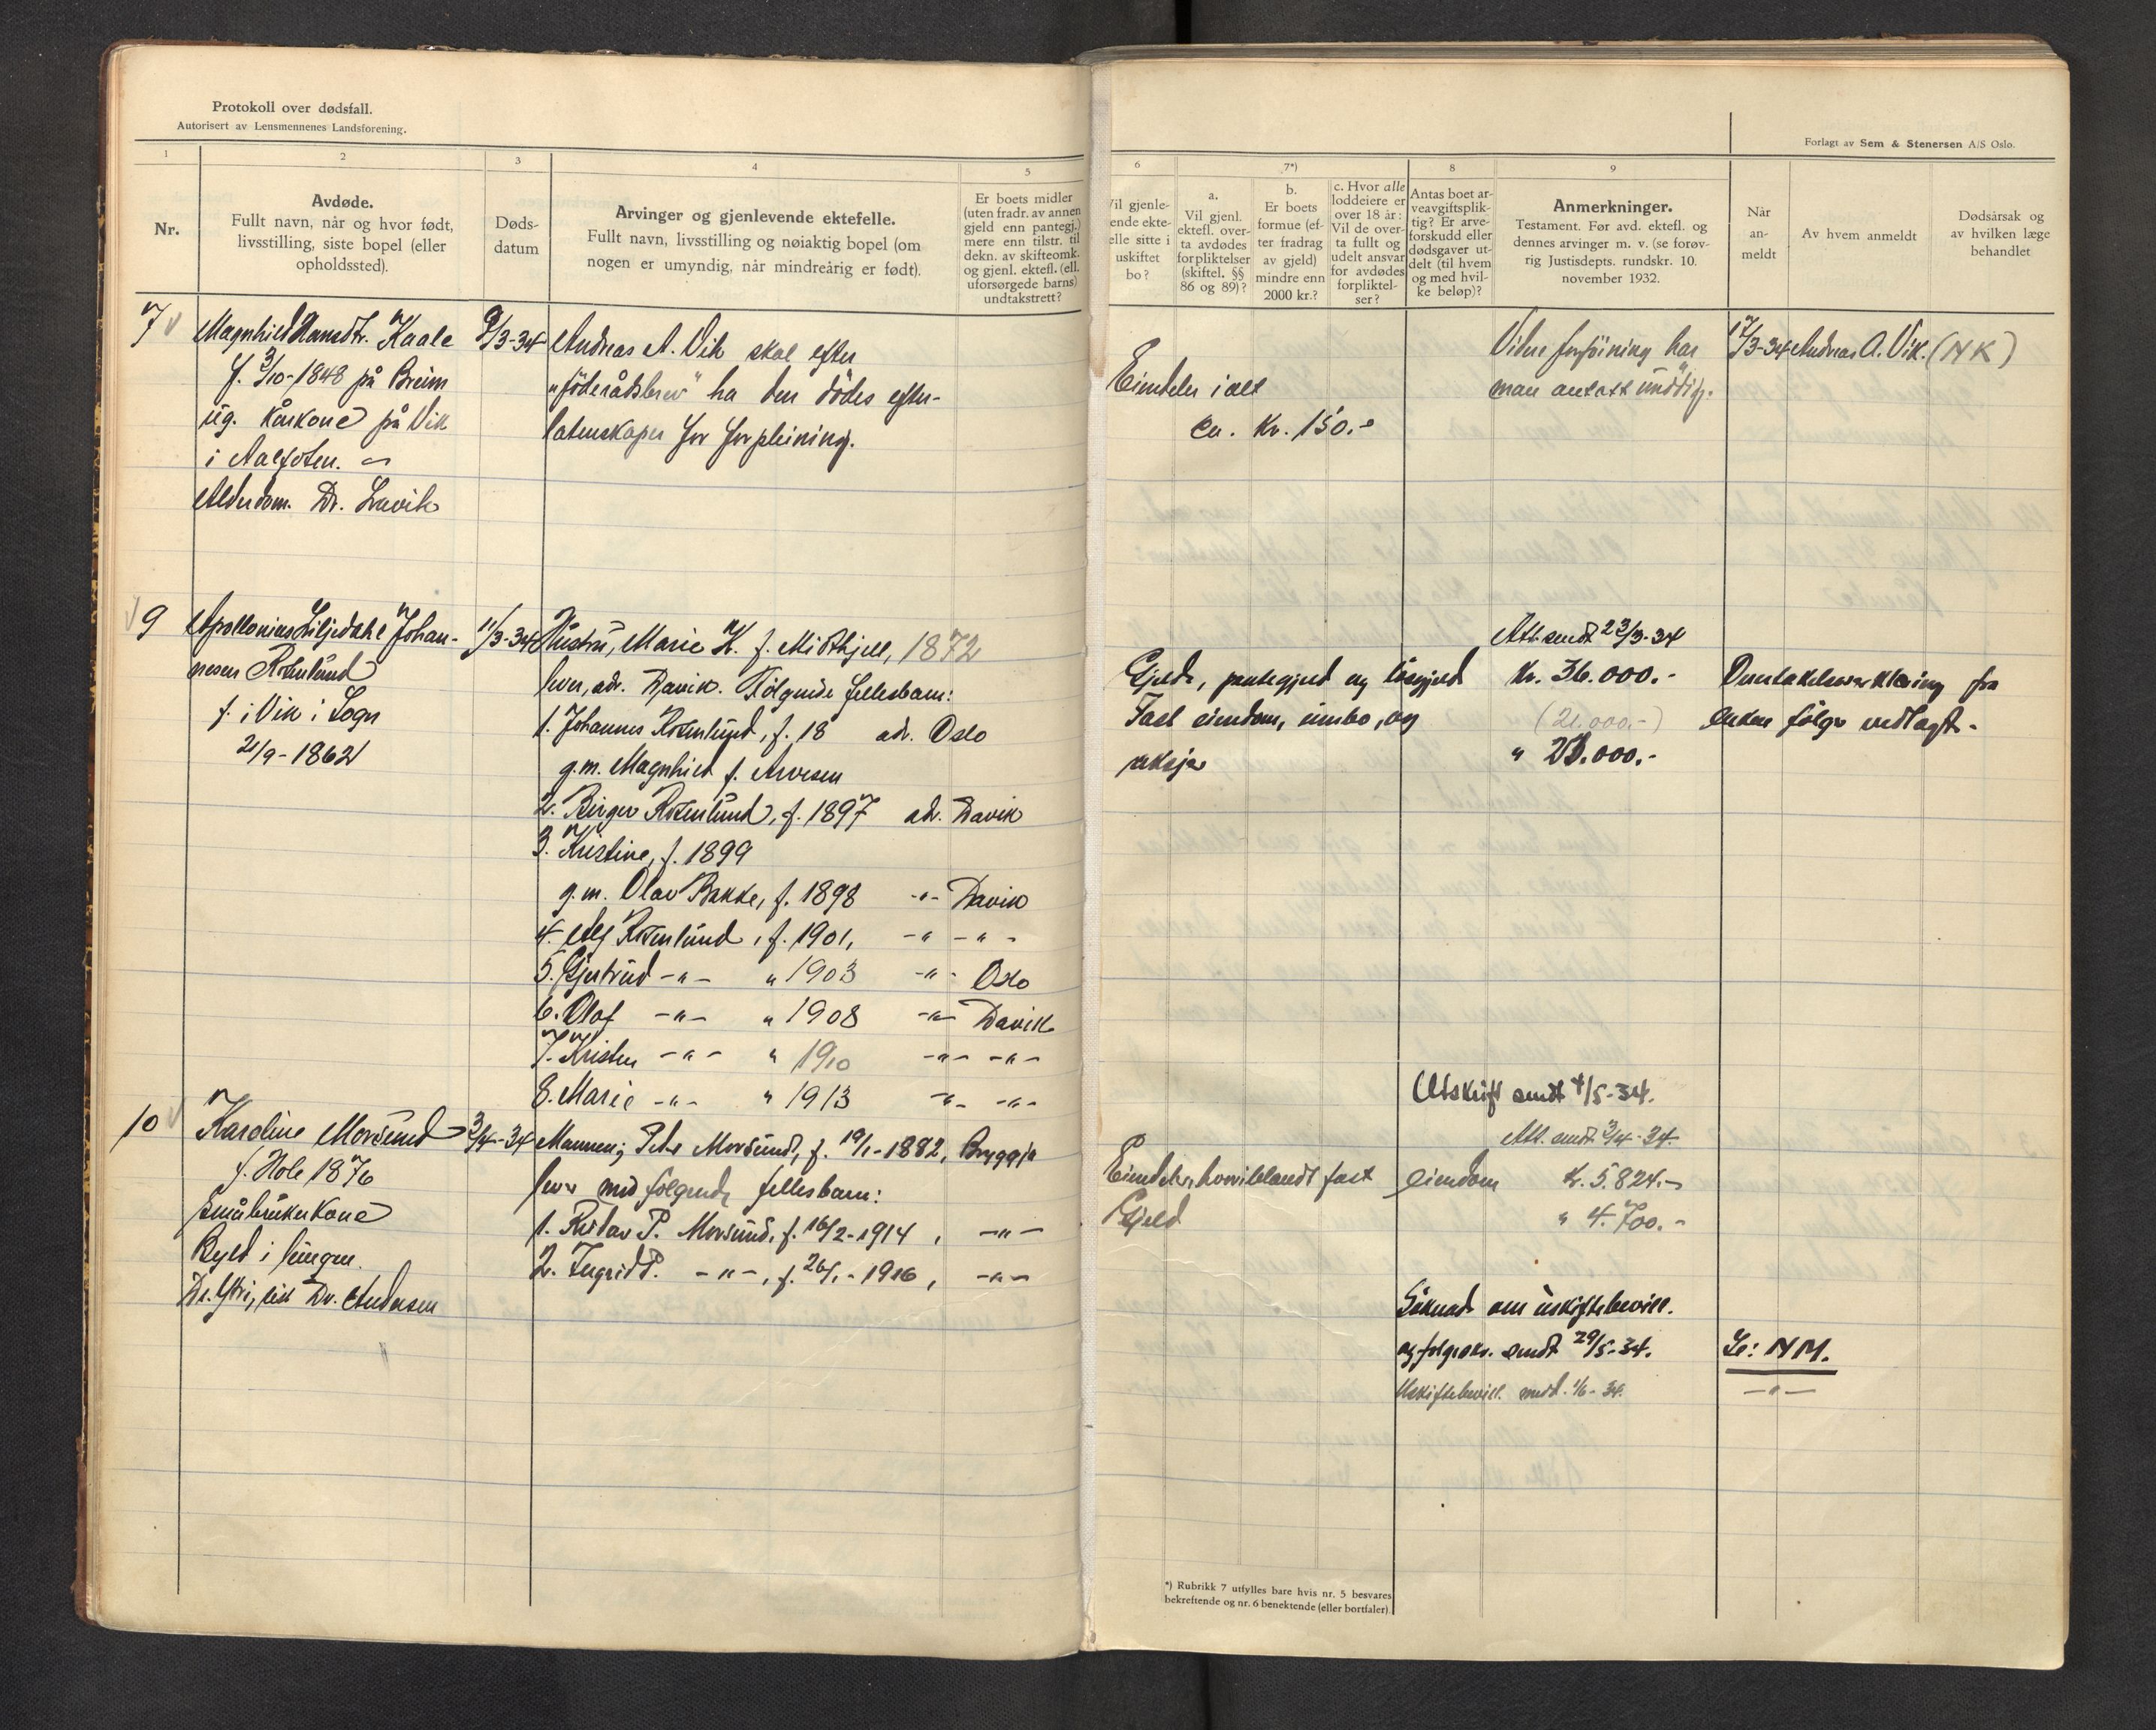 Protokoll over dødsfall.
Autorisert av Lensmennenes Landsforening.
1
2
3
4
5
Nr.
Avdøde.
Fullt navn, når og hvor født,
livsstilling, siste bopel (eller
opholdssted).
Døds-
datum
Arvinger og gjenlevende ektefelle.
Fullt navn, livsstilling og nøiaktig bopel (om
nogen er umyndig, når mindreårig er født).
Er boets midler
(uten fradr. av annen
gjeld enn pantegj.)
mere enn tilstr. til
dekn. av skifteomk.
og gjenl. ektefl. (ell.
uforsørgede barns)
undtakstrett?
7
Magnhild Hansdtr. Kaale
f. 3/10-1848 på Breim
ug. kårkone på Vik
i Aalfoten.
Alderdom. Dr. Lavik
9/3-34
Andreas A. Vik skal efter
"föderådsbrev" ha den dödes efter-
latenskaper for forpleining.
9
Apollonius Liljedahl Johan-
nesen Rosenlund
f. i Vik i Sogn
21/9-1862
11/3-34
Hustru, Marie K. f. Midthjell, 1872
lever, adr. Davik. Følgende fellesbarn:
1. Johannes Rosenlund, f. 18 adr. Oslo
g.m. Magnhild f. Arvesen
2. Birger Rosenlund, f. 1897 adr. Davik
3. Kristine, f. 1899
g.m. Olav Bakke, f. 1898 -"- Davik
4. Alf Rosenlund, f. 1901, -"- -"-
5. Gjertrud -"- " 1903 -"- Oslo
6. Olaf -"- " 1908 -"- Davik
7. Kristen -"- " 1910 -"- -"-
8. Marie -"- " 1913 -"- -"-
10
Karoline Morsund
f. Hole 1876
småbrukerkone
Byld i lungen.
Dr. Ytri, sist Dr. Andersen
3/4-34
Mannen; Peder Morsund, f. 19/1-1882, Bryggja
lever med følgende fellesbarn:
1. Reidar P. Morsund, f. 16/2-1914, -"-
2. Ingrid P. -"-, f. 26/1-1916, -"-
Forlagt av Sem & Stenersen A/S Oslo.
6
7*)
8
9
Vil gjenle-
ende ekte-
elle sitte i
uskiftet
bo?
a.
Vil gjenl.
ektefl. over-
ta avdødes
forpliktelser
(skiftel. §§
86 og 89)?
b.
Er boets
formue (ef-
ter fradrag
av gjeld)
mindre enn
2000 kr.?
c. Hvor alle
loddeiere er
over 18 år:
Vil de over-
ta fullt og
udelt ansvar
for avdødes
forpliktel-
ser?
Antas boet ar-
veavgiftsplik-
tig? Er arve-
forskudd eller
dødsgaver ut-
delt (til hvem
og med hvil-
ke beløp)?
Anmerkninger.
Testament. Før avd. ektefl. og
dennes arvinger m. v. (se forøv-
rig Justisdepts. rundskr. 10.
november 1932.
Når
an-
meldt
Av hvem anmeldt
Dødsårsak og
av hvilken læge
behandlet
Eiendeler i alt
ca. kr. 150.-
Videre forföining har
man antatt unödig.
17/3-34 Andreas A. Vik. (NK)
Att. sendt 23/3-34
Gjeld, pantegjeld og løsgjeld kr. 36.000.-
Fast eiendom, innbo, og (21.000.-)
aksjer " 23.000.-
Overtakelseserklæring fra
enken følger vedlagt.
Utskrift sendt 4/5-34.
Att. sendt 3/4-34.
Eiendeler, hvoriblandt fast eiendom kr. 5.824.-
Gjeld " 4.700.-
Söknad om uskiftebevill.
og følgeskr. sendt 29/5-34.
Le: NM.
Uskiftebevill. medd. 1/6-34.
-"-
*) Rubrikk 7 utfylles bare hvis nr. 5 besvares
bekreftende og nr. 6 benektende (eller bortfaler).